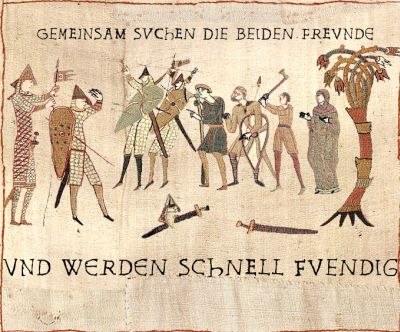 GEMEINSAM SUCHEN DIE BEIDEN FREUNDE
UND WERDEN SCHNELL FUENDIG